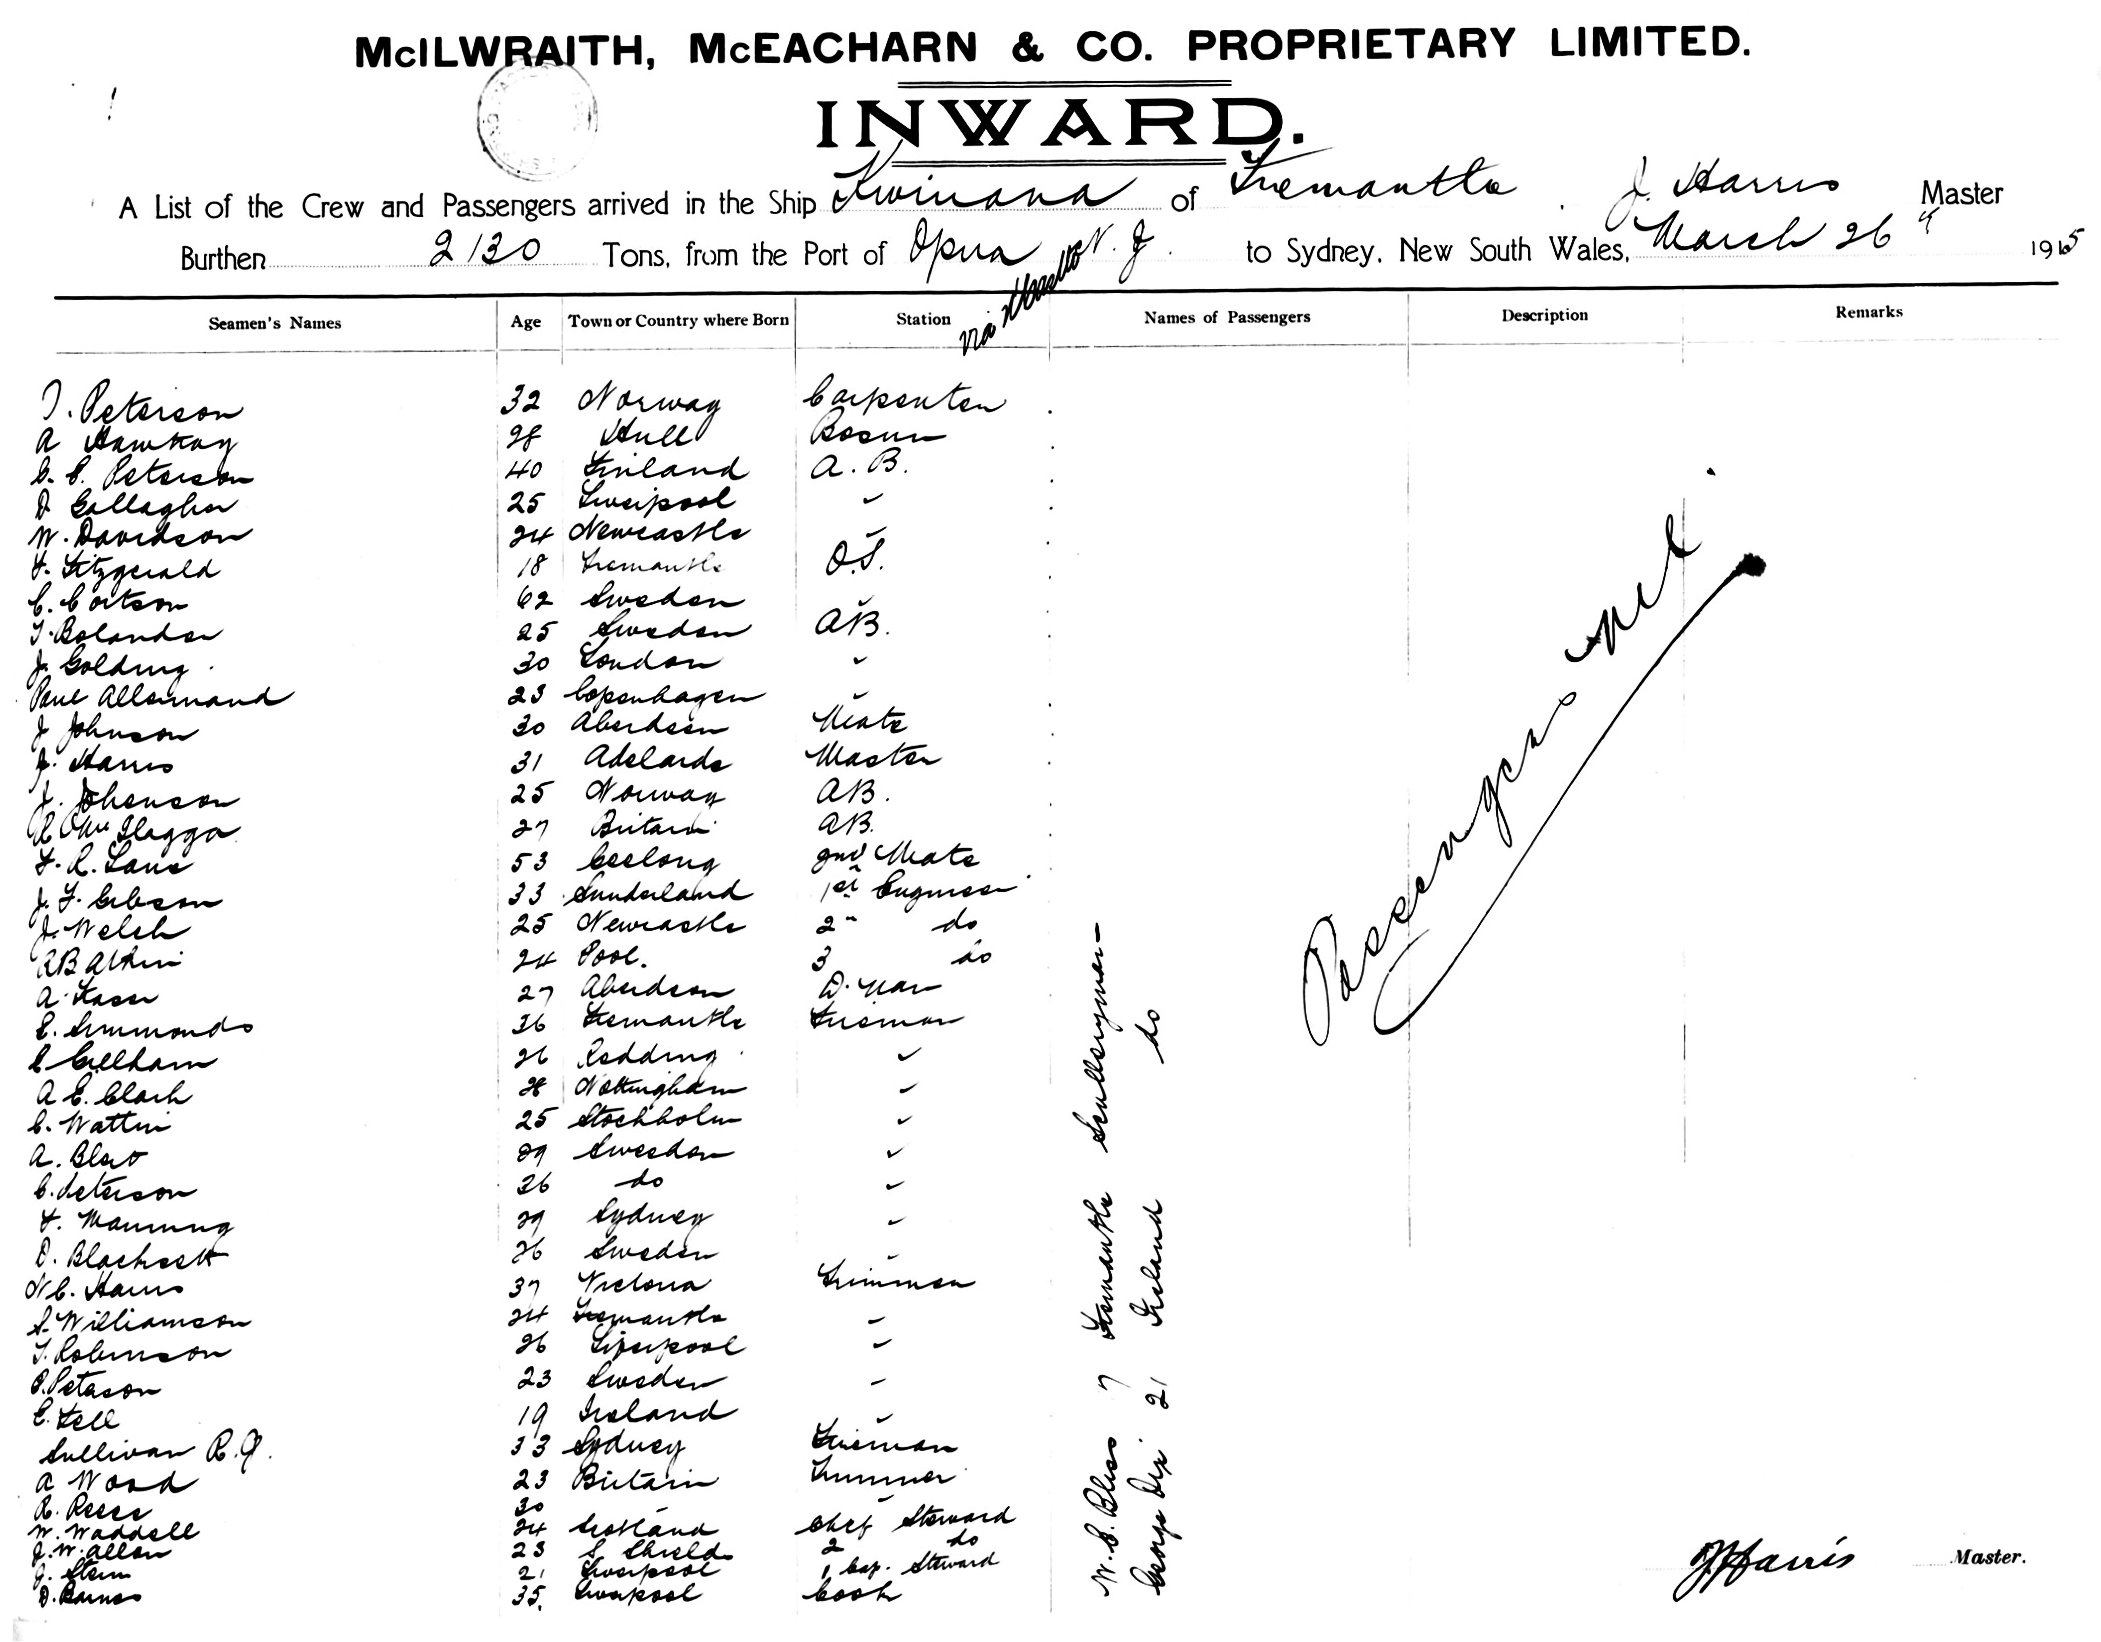 McILWRAITH, McEACHARN & CO. PROPRIETARY LIMITED.
INWARD.
A List of the Crew and Passengers arrived in the Ship Kwinana of Fremantle. J. Harris Master
Burthen 2130 Tons, from the Port of Opua N. Z. to Sydney, New South Wales, March 26th 1915
via
Seamen's Names Age Town or Country where Born Station Names of Passengers Description Remarks
J. Peterson 32 Norway Carpenter
A Hawkay 28 Hull Bosun
C. E. Peterson 40 Finland A. B.
D Gallagher 25 Liverpool "
W. Davidson 24 Newcastle "
F. Fitzgerald 18 Fremantle O.S.
C. Coitson 62 Sweden "
J. Bolander 25 Sweden AB.
J. Golding 30 London "
Paul Allermand 23 Copenhagen "
J Johnson 30 Aberdeen Mate
J. Harris 31 Adelaide Master
J. Johenson 25 Norway AB.
R 27 Britain AB.
F. R. Lane 53 Geelong 2nd Mate
J. F. Gibson 33 Sunderland 1st Engineer
J. Welsh 25 Newcastle 2" do
A B Atkin 24 Pool. 3 do
A. Fraser 27 Aberdeen D. Man
E. Simmonds 36 Fremantle Fireman
E Gillham 26 Redding "
A E. Clark 28 Nottingham "
C. Wattin 25 Stockholm "
A. 29 Sweeden "
C. Peterson 26 do "
F. Manning 29 Sydney "
D. Blackett 26 Sweden "
N C. Harris 37 Victoria Trimmer
S. Williamson 24 Fremantle "
J. Robinson 26 Liverpool "
P. Peterson 23 Sweden "
E. Fell 19 Ireland "
Sullivan R. J. 33 Sydney Fireman
A Wood 23 Britain Trimmer
R. Reese 30 "
W. Waddell 24 Scotland Chief Steward
J. W. Allan 23 S. Shields 2 do
J. Stein 21 Liverpool 1 Cap. Steward
D. Barnes 35. Liverpool Cook
W. C. Bliss 7 Fremantle Sculleryman
George Dix 21 Ireland do
Passengers Nil.
J Harris Master.